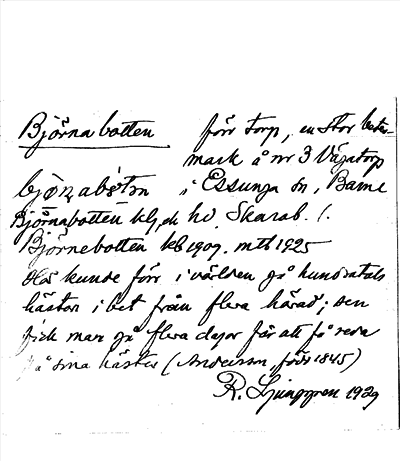 Björnabotten förr torp, en stor betes-
mark å nr 3 Vägatorp
i Essunga sn, Barne
Björnabotten hd, Skarab. l.
Björnebotten kb 1909, mtb 1925
Här kunde förr i världen gå hundratals
hästar i bet från flera härad; den
fick man gå flera dagar för att få reda
på sina hästar (Andersson, född 1845)
R. Ljunggren 1929